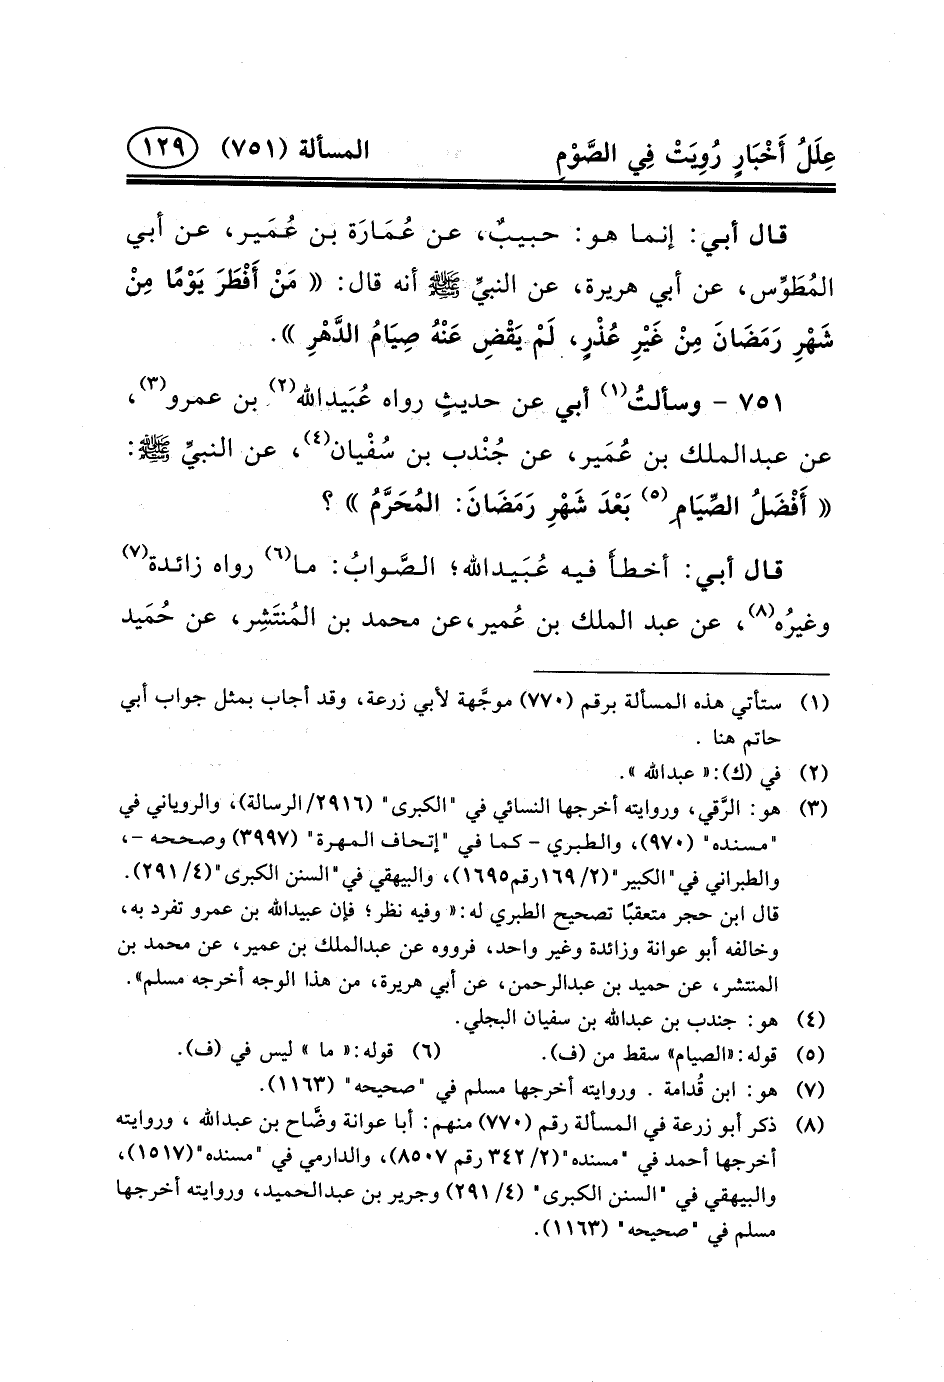 عِلَلُ أَخْبَارٍ رُوِيَتْ فِي الصَّوْمِ المسألة (٧٥١) ١٢٩
قال أبي: إنما هو: حبيبٌ، عن عُمَارَة بن عُمَير، عن أبي
المُطَوِّس، عن أبي هريرة، عن النبيِّ ﷺ أنه قال: « مَنْ أَفْطَرَ يَوْمًا مِنْ
شَهْرِ رَمَضَانَ مِنْ غَيْرِ عُذْرٍ، لَمْ يَقْضِ عَنْهُ صِيَامُ الدَّهْرِ ».
٧٥١ - وسألتُ(١) أبي عن حديثٍ رواه عُبَيدالله(٢) بن عمرو(٣)،
عن عبدالملك بن عُمَير، عن جُنْدب بن سُفْيان(٤)، عن النبيِّ ﷺ:
« أَفْضَلُ الصِّيَامِ(٥) بَعْدَ شَهْرِ رَمَضَانَ: المُحَرَّمُ » ؟
قال أبي: أخطأَ فيه عُبَيدالله؛ الصَّوابُ: ما(٦) رواه زائدة(٧)
وغيرُه(٨)، عن عبد الملك بن عُمير،عن محمد بن المُنْتَشِر، عن حُمَيد
(١) ستأتي هذه المسألة برقم (٧٧٠) موجَّهة لأبي زرعة، وقد أجاب بمثل جواب أبي
حاتم هنا .
(٢) في (ك):« عبدالله ».
(٣) هو: الرَّقي، وروايته أخرجها النسائي في "الكبرى" (٢٩١٦/الرسالة)، والروياني في
"مسنده" (٩٧٠)، والطبري – كما في "إتحاف المهرة" (٣٩٩٧) وصححه –،
والطبراني في "الكبير" (٢/ ١٦٩رقم١٦٩٥)، والبيهقي في "السنن الكبرى" (٤/ ٢٩١).
قال ابن حجر متعقبًا تصحيح الطبري له:« وفيه نظر؛ فإن عبيدالله بن عمرو تفرد به،
وخالفه أبو عوانة وزائدة وغير واحد، فرووه عن عبدالملك بن عمير، عن محمد بن
المنتشر، عن حميد بن عبدالرحمن، عن أبي هريرة، من هذا الوجه أخرجه مسلم».
(٤) هو: جندب بن عبدالله بن سفيان البجلي.
(٥) قوله:«الصيام» سقط من (ف). (٦) قوله:« ما » ليس في (ف).
(٧) هو: ابن قُدامة . وروايته أخرجها مسلم في "صحيحه" (١١٦٣).
(٨) ذكر أبو زرعة في المسألة رقم (٧٧٠) منهم: أبا عوانة وضَّاح بن عبدالله ، وروايته
أخرجها أحمد في "مسنده"(٢/ ٣٤٢ رقم ٨٥٠٧)، والدارمي في "مسنده"(١٥١٧)،
والبيهقي في "السنن الكبرى" (٤/ ٢٩١) وجرير بن عبدالحميد، وروايته أخرجها
مسلم في "صحيحه" (١١٦٣).